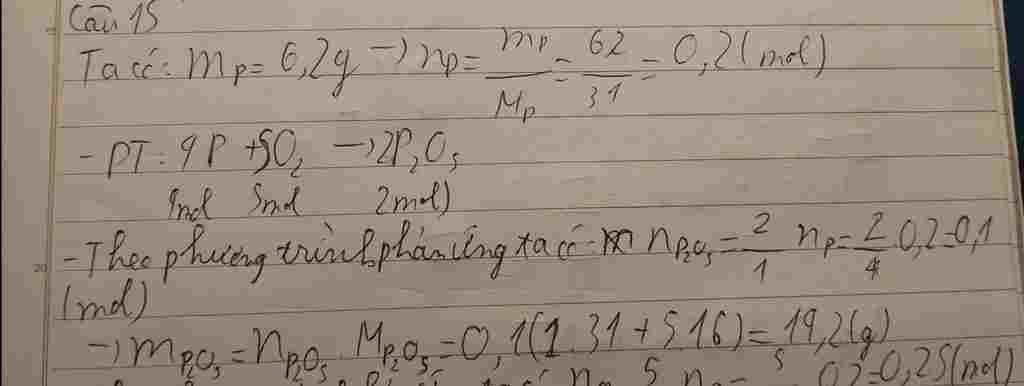 Câu 15
Ta có: mP = 6,2g → nP = mP/MP = 62/31 = 0,2 (mol)
- PT: 4P + 5O2 → 2P2O5
4mol 5mol 2mol)
- Theo phương trình phản ứng ta có: m nP2O5 = 2/1 nP = 2/4 0,2 = 0,1
(mol)
→ mP2O5 = nP2O5 . MP2O5 = 0,1(1.31 + 5.16) = 19,2(g)
5 0,2 = 0,25(mol)